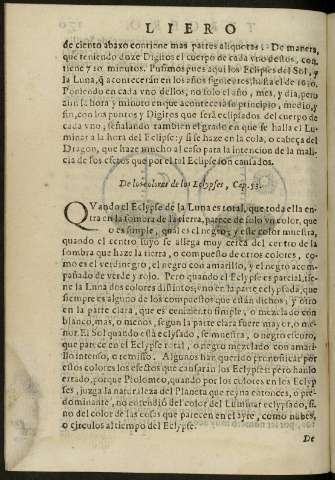 LIBRO
de ciento abaxo contiene mas partes aliquotas: De manera,
que teniendo doze Digitos el cuerpo de cada vno destos, con
tiene 710. minutos. Pusimos pues aqui los Eclipses del Sol, y
la Luna, q̃ acontecerán en los años siguientes, hasta el de 1610.
Poniendo en cada vno dellos, no solo el año, mes, y dia, pero
aun la hora y minuto en que acontece su principio, medio, y
fin, con los puntos y Digitos que será eclipsados del cuerpo de
cada vno, señalando tambien el grado en que se halla el Lu-
minar a la hora del Eclipse; y si se haze en la cola, o cabeça del
Dragon, que haze mucho al caso para la intencion de la mali
cia de los efectos que por el tal Eclipse son causados.
De los colores de los Eclypses, Cap. 53.
QVando el Eclypse de la Luna es total, que toda ella en-
tra en la sombra de la tierra, parece de solo vn color, que
o es simple, qual es el negro, y este color muestra,
quando el centro suyo se allega muy cerca del centro de la
sombra que haze la tierra, o compuesto de otros colores, co-
mo es el verdinegro, el negro con amarillo, y el negro acom-
pañado de verde y rojo. Pero quando el Eclypse es parcial, tie-
ne la Luna dos colores distintos, vno en la parte eclypsada, que
siempre es alguno de los compuestos que están dichos, y otro
en la parte clara, que es ceniziento simple, o mezclado con
blanco, mas, o menos, segun la parte clara fuere mayor, o me-
nor. El Sol quando está eclypsado, se muestra, o negro escuro,
que parece en el Eclypse total, o negro mezclado con amari-
llo intenso, o remisso. Algunos han querido pronosticar por
estos colores los efectos que causarán los Eclypses: pero han lo
errado, porque Ptolomeo, quando por los colores en los Eclyp
ses, juzga la naturaleza del Planeta que reyna entonces, o pre-
dominante, no entendió del color del Luminar eclypsado, si-
no del color de las cosas que parecen en el ayre, como nubes,
o circulos al tiempo del Eclypse.
De